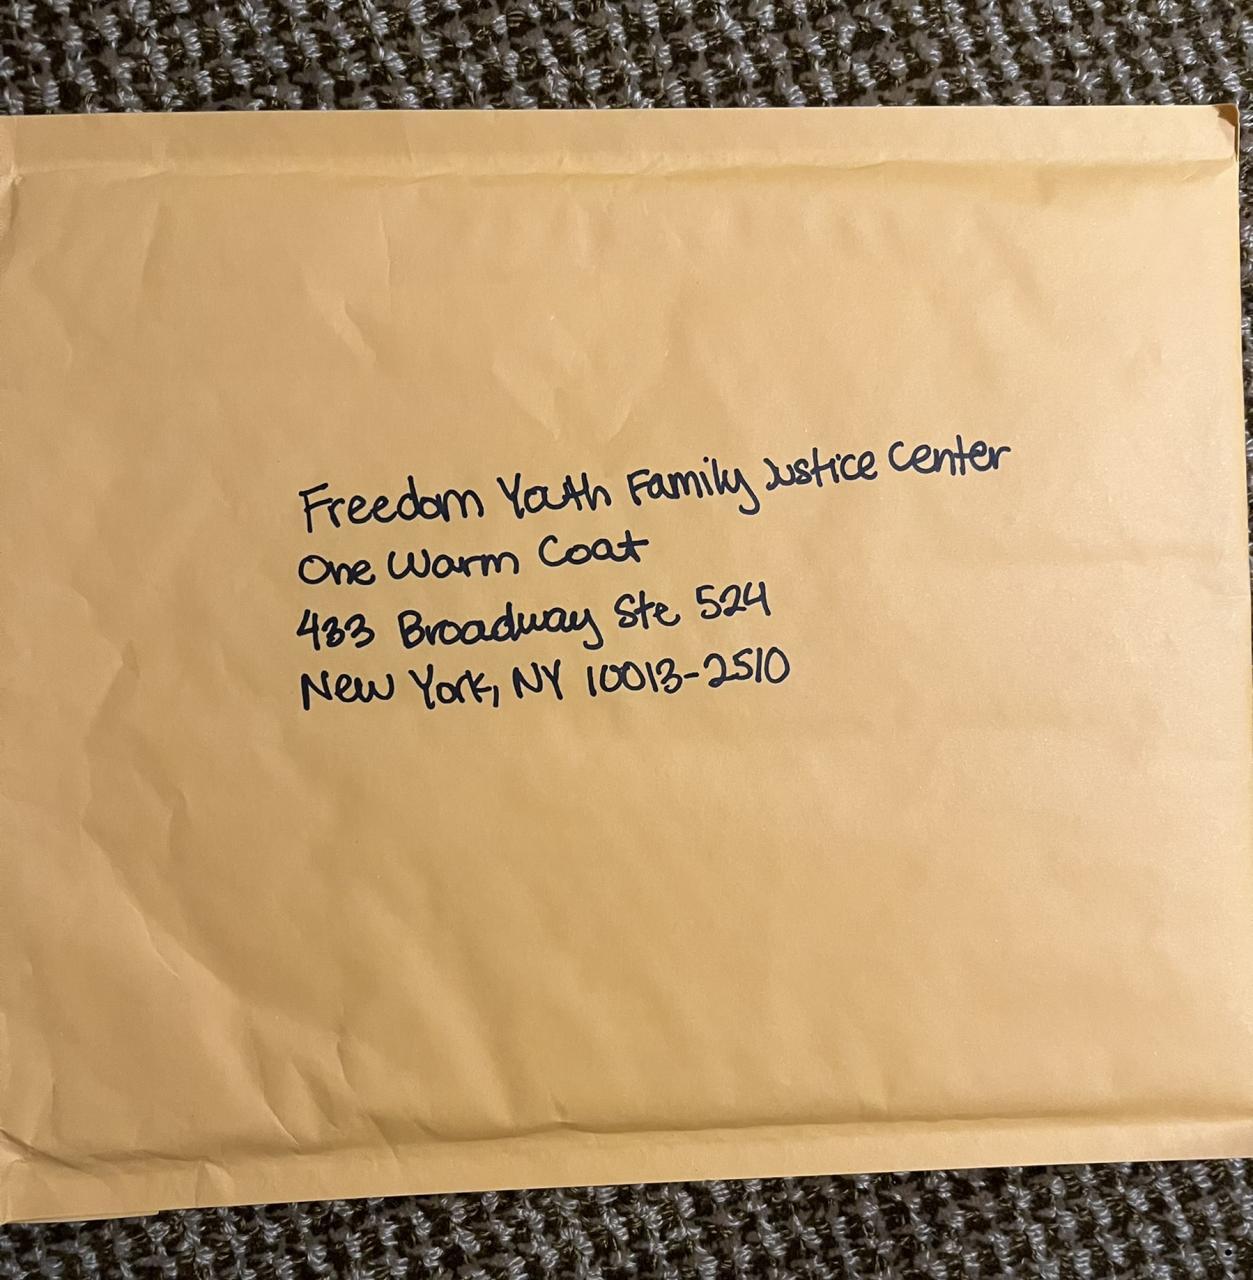 Freedom Youth Family Justice Center
One Warm Coat
433 Broadway Ste 524
New York, NY 10013-2510